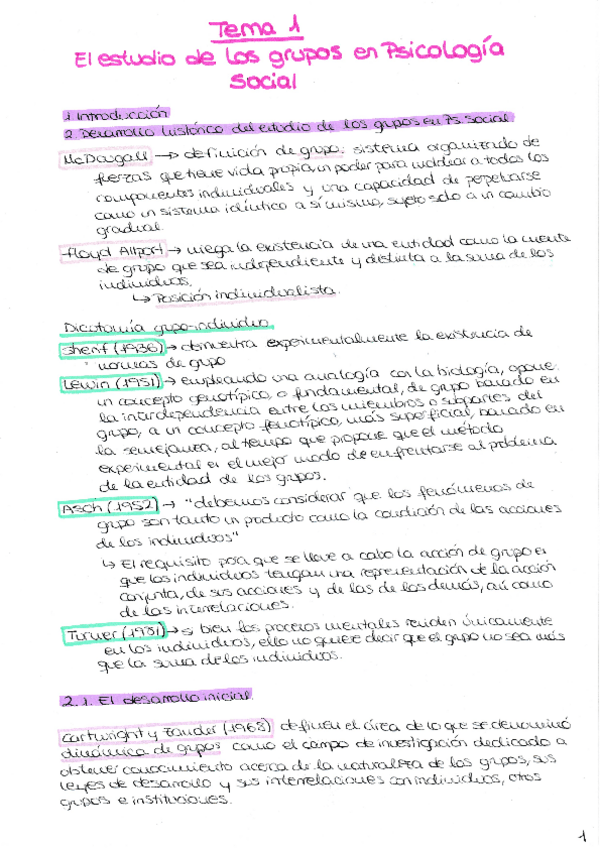 Tema 1
El estudio de los grupos en Psicología
Social
1. Introducción
2. Desarrollo histórico del estudio de los grupos en Ps. Social
McDougall → definición de grupo: sistema organizado de
fuerzas que tiene vida propia, un poder para moldear a todos los
componentes individuales y una capacidad de perpetuarse
como un sistema idéntico a sí mismo, sujeto solo a un cambio
gradual.
Floyd Allport → niega la existencia de una entidad como la mente
de grupo que sea independiente y distinta a la suma de los
individuos.
↳ Posición individualista.
Dicotomía grupo-individuo
Sherif (1936) → demuestra experimentalmente la existencia de
normas de grupo
Lewin (1951) → empleando una analogía con la biología, opone
un concepto genotípico, o fundamental, de grupo basado en
la interdependencia entre los miembros o subpartes del
grupo, a un concepto fenotípico, más superficial, basado en
la semejanza, al tiempo que propone que el método
experimental es el mejor modo de enfrentarse al problema
de la entidad de los grupos.
Asch (1952) → "debemos considerar que los fenómenos de
grupo son tanto un producto como la condición de las acciones
de los individuos"
↳ El requisito para que se lleve a cabo la acción de grupo es
que los individuos tengan una representación de la acción
conjunta, de sus acciones y de las de los demás, así como
de las interrelaciones.
Turner (1981) → si bien los procesos mentales residen únicamente
en los individuos, ello no quiere decir que el grupo no sea más
que la suma de los individuos.
2.1. El desarrollo inicial
Cartwright y Zander (1968) definen el área de lo que se denominó
dinámica de grupos como el campo de investigación dedicado a
obtener conocimiento acerca de la naturaleza de los grupos, sus
leyes de desarrollo y sus interrelaciones con individuos, otros
grupos e instituciones.
1